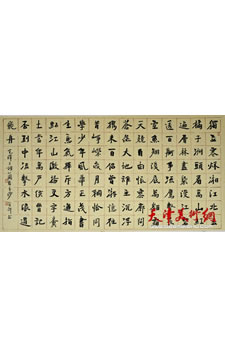 獨立寒秋湘江北去
橘子洲頭看萬山紅
遍層林盡染漫江碧
透百舸爭流鷹擊長
空魚翔淺底萬類霜
天競自由悵寥廓問
蒼茫大地誰主沉浮
携來百侣曾游憶往
昔崢嶸歲月稠恰同
學少年風華正茂書
生意氣揮斥方遒指
點江山激揚文字糞
土當年萬户侯曾記
否到中流擊水浪遏
飛舟
天津美術網